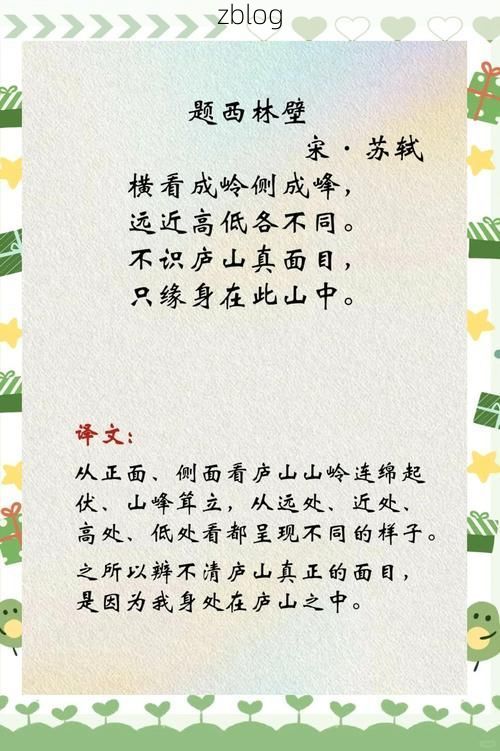 zblog
题西林壁
宋·苏轼
横看成岭侧成峰，
远近高低各不同。
不识庐山真面目，
只缘身在此山中。
译文：
从正面、侧面看庐山山岭连绵起
伏、山峰耸立，从远处、近处、
高处、低处看都呈现不同的样子。
之所以辨不清庐山真正的面目，
是因为我身处在庐山之中。